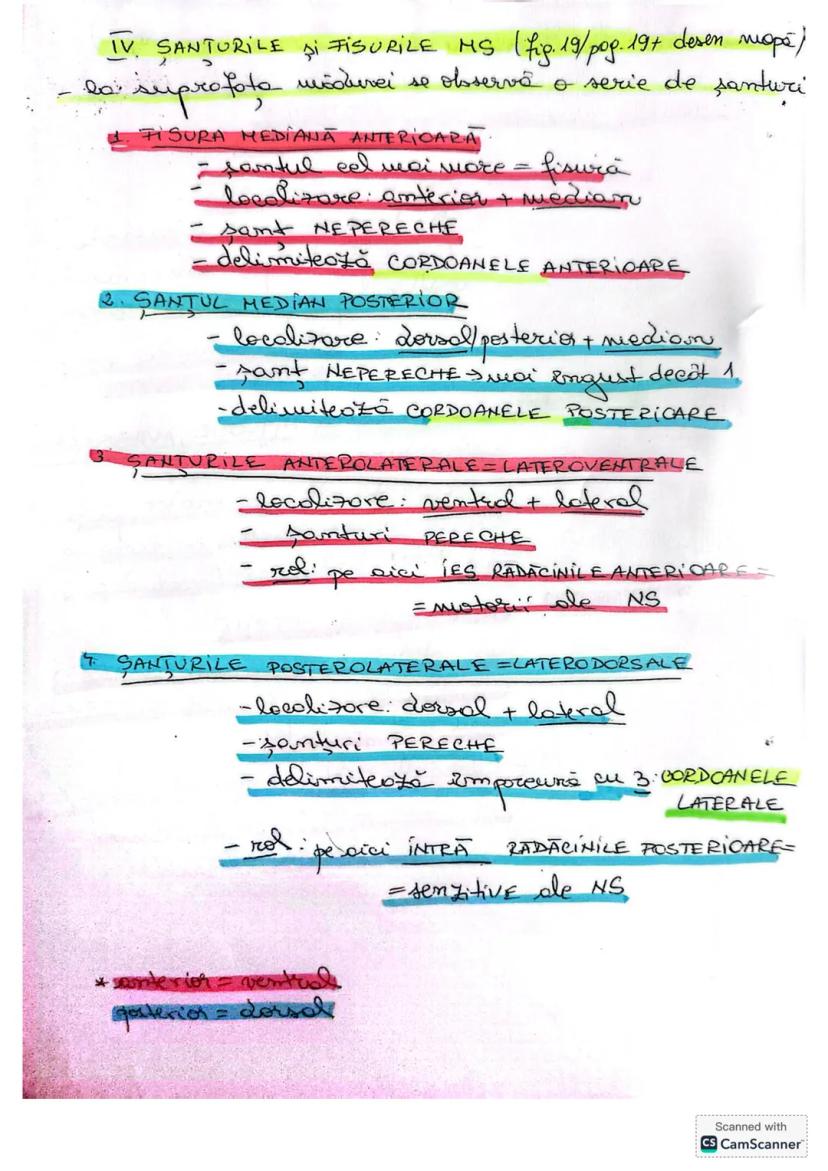 IV. ȘANȚURILE și FISURILE MS (fig. 19/pag. 19 + desen mapă)
- la suprafața măduvei se observă o serie de șanturi
1. FISURA MEDIANĂ ANTERIOARĂ
- șantul cel mai mare = fisură
- localizare: anterior + median
- șanț NEPERECHE
- delimitează CORDOANELE ANTERIOARE
2. ȘANȚUL MEDIAN POSTERIOR
- localizare: dorsal/posterior + median
- șanț NEPERECHE → mai îngust decât 1
- delimitează CORDOANELE POSTERIOARE
3. ȘANȚURILE ANTEROLATERALE = LATEROVENTRALE
- localizare: ventral + lateral
- șanturi PERECHE
- rol: pe aici IES RĂDĂCINILE ANTERIOARE =
= motorii ale NS
4. ȘANȚURILE POSTEROLATERALE = LATERODORSALE
- localizare: dorsal + lateral
- șanțuri PERECHE
- delimitează împreună cu 3. CORDOANELE
LATERALE
- rol: pe aici INTRĂ RĂDĂCINILE POSTERIOARE =
= senzitive ale NS
* anterior = ventral
posterior = dorsal
Scanned with
CS CamScanner